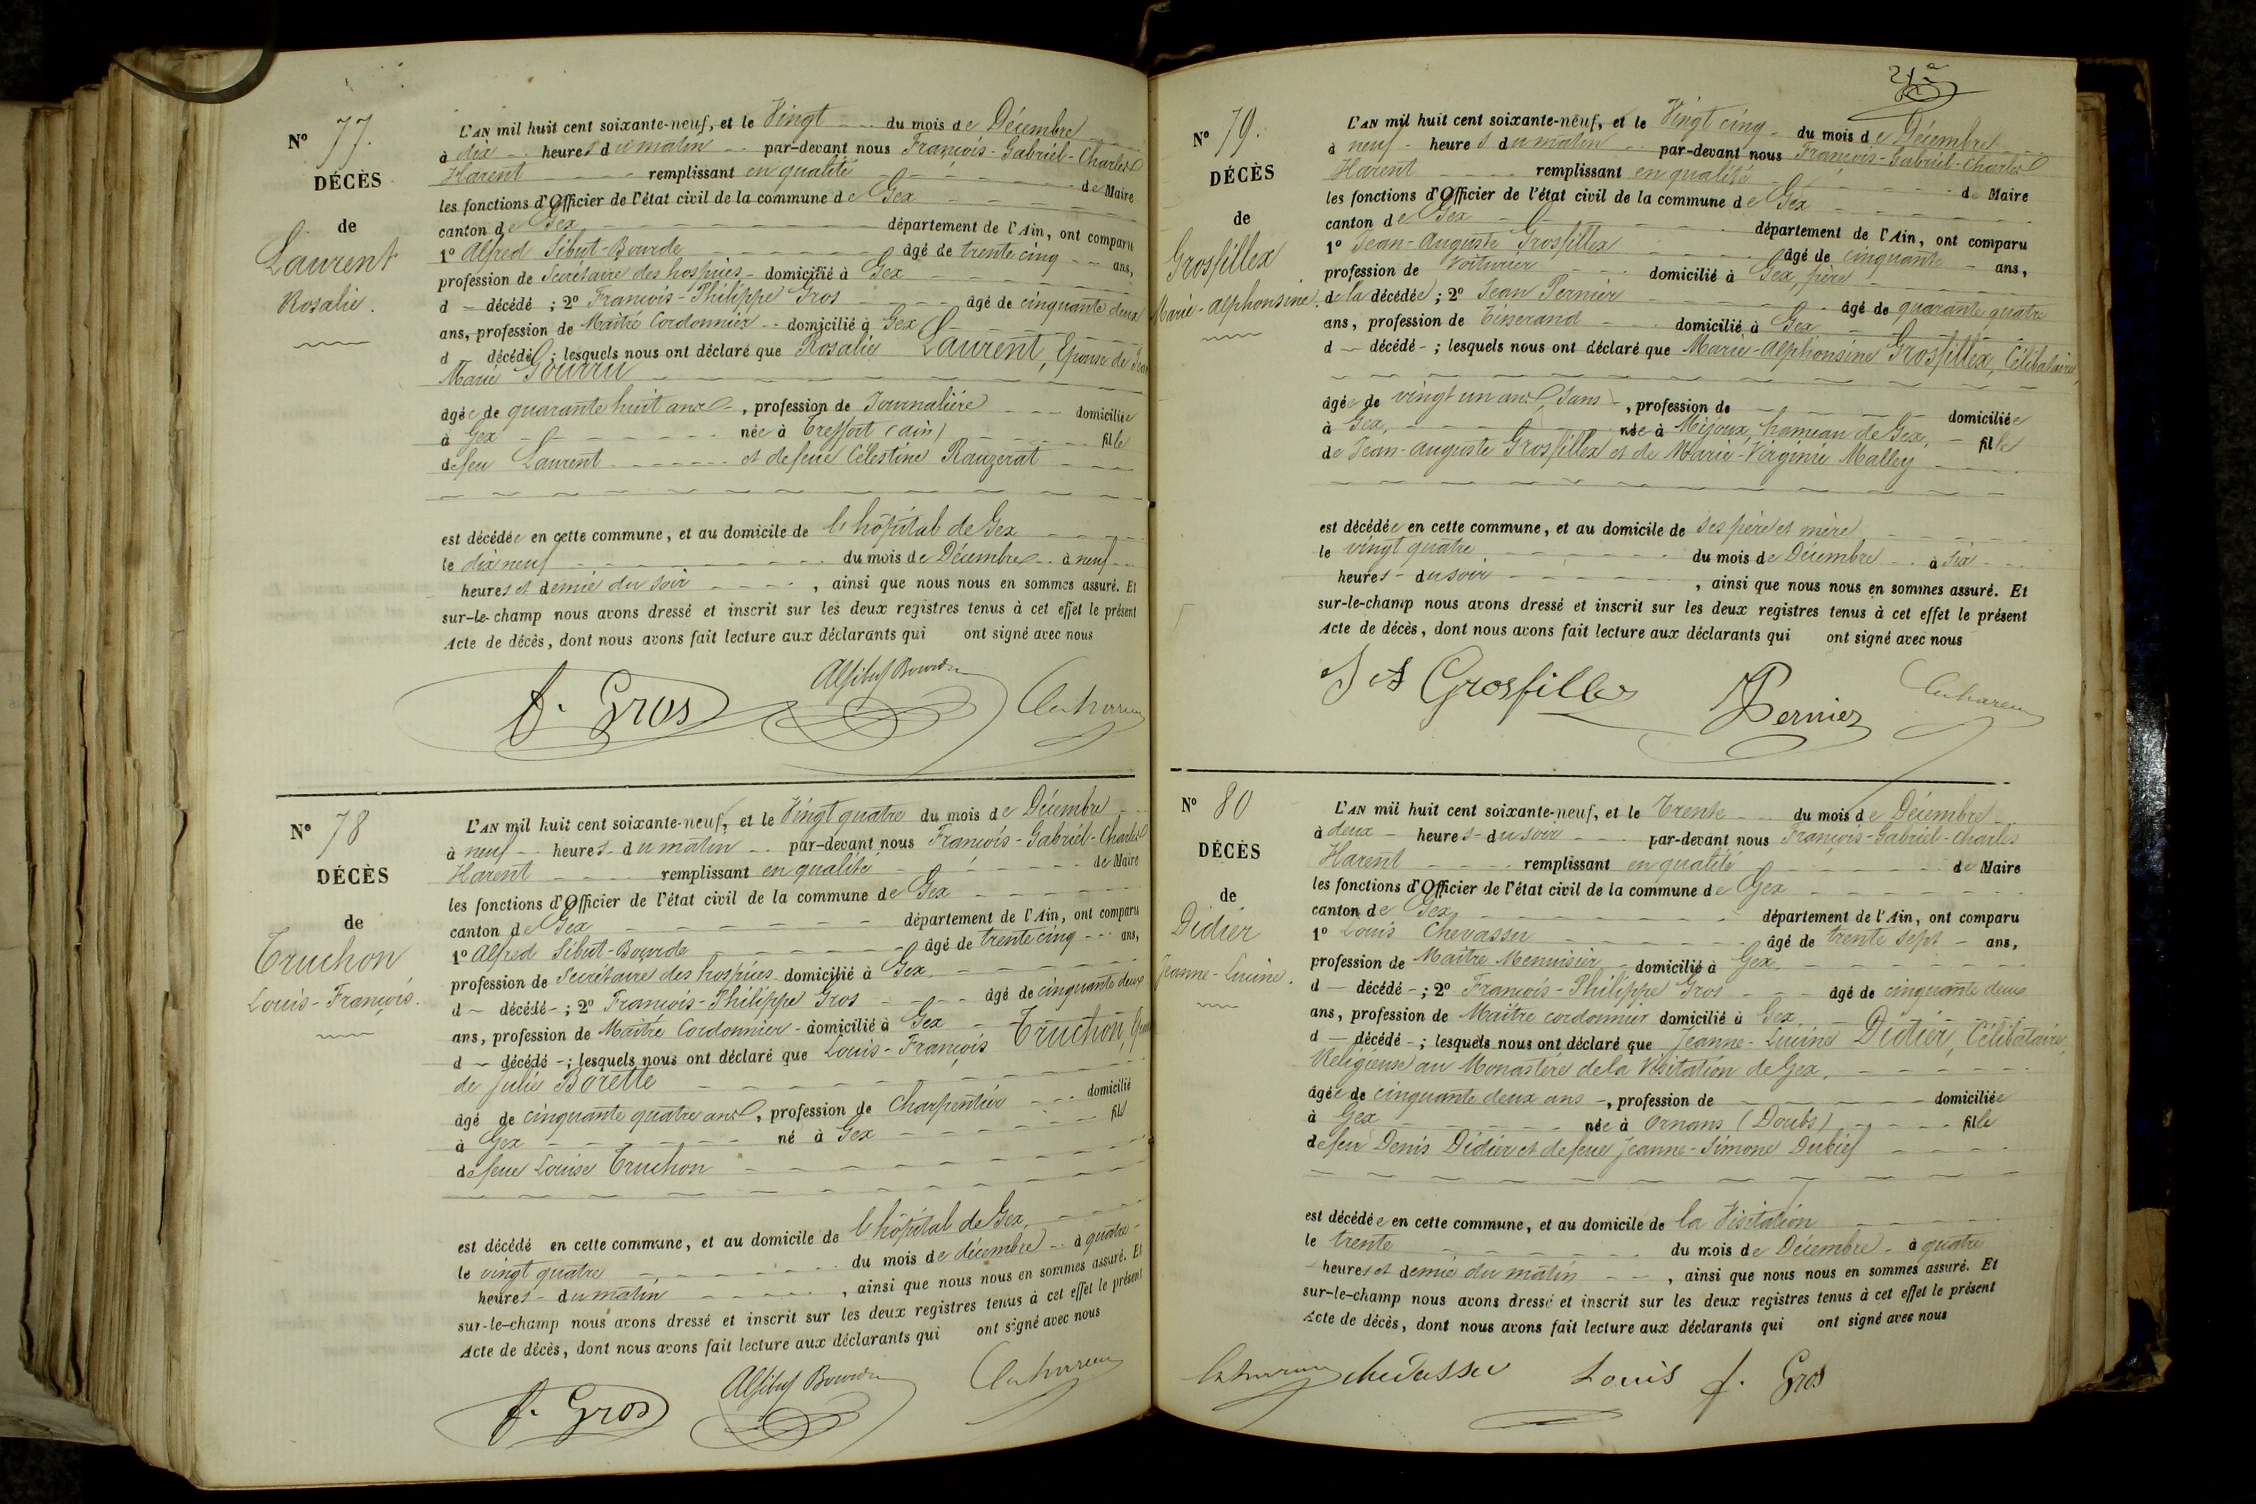 Nº 77.
DÉCÈS
de
Laurent
Rosalie.
L'AN mil huit cent soixante-neuf, et le Vingt du mois de Décembre
à dix heures du matin par-devant nous François-Gabriel-Charles
Harent remplissant en qualité de Maire
les fonctions d'Officier de l'état civil de la commune de Gex
canton de Gex département de l'Ain, ont comparu
1º Alfred Sibut-Bourde âgé de trente cinq ans,
profession de Secrétaire des hospices domicilié à Gex
d décédé ; 2º François-Philippe Gros âgé de cinquante deux
ans, profession de Maître Cordonnier domicilié à Gex
d décédé ; lesquels nous ont déclaré que Rosalie Laurent, Epouse de Jean
Marie Gourru
âgée de quarante huit ans, profession de Journalière domiciliée
à Gex née à Treffort (ain) fille
de feu Laurent et de feue Célestine Rauzerat
est décédée en cette commune, et au domicile de l'hôpital de Gex
le dix neuf du mois de Décembre à neuf
heures et demie du soir, ainsi que nous nous en sommes assuré. Et
sur-le-champ nous avons dressé et inscrit sur les deux registres tenus à cet effet le présent
Acte de décès, dont nous avons fait lecture aux déclarants qui ont signé avec nous
f. Gros
Nº 78
DÉCÈS
de
Truchon
Louis-François.
L'AN mil huit cent soixante-neuf, et le Vingt quatre du mois de Décembre
à neuf heures du matin par-devant nous François-Gabriel-Charles
Harent remplissant en qualité de Maire
les fonctions d'Officier de l'état civil de la commune de Gex
canton de Gex département de l'Ain, ont comparu
1º Alfred Sibut-Bourde âgé de trente cinq ans,
profession de Secrétaire des hospices domicilié à Gex
d décédé ; 2º François-Philippe Gros âgé de cinquante deux
ans, profession de Maître Cordonnier domicilié à Gex
d décédé ; lesquels nous ont déclaré que Louis-François Truchon,
de Julie Borette
âgé de cinquante quatre ans, profession de Charpentier domicilié
à Gex né à Gex fils
de feue Louise Truchon
est décédé en cette commune, et au domicile de l'hôpital de Gex
le vingt quatre du mois de décembre à quatre
heures du matin, ainsi que nous nous en sommes assuré. Et
sur-le-champ nous avons dressé et inscrit sur les deux registres tenus à cet effet le présent
Acte de décès, dont nous avons fait lecture aux déclarants qui ont signé avec nous
f. Gros
Nº 79.
DÉCÈS
de
Grosfillex
Marie-alphonsine.
L'AN mil huit cent soixante-neuf, et le Vingt cinq du mois de Décembre
à neuf heures du matin par-devant nous François-Gabriel-Charles
Harent remplissant en qualité de Maire
les fonctions d'Officier de l'état civil de la commune de Gex
canton de Gex département de l'Ain, ont comparu
1º Jean-Auguste Grosfillex âgé de cinquante ans,
profession de Voiturier domicilié à Gex, père
de la décédée ; 2º Jean Pernier âgé de quarante quatre
ans, profession de Tisserand domicilié à Gex
d décédé ; lesquels nous ont déclaré que Marie-Alphonsine Grosfillex, Célibataire,
âgée de vingt un ans, Sans, profession de domiciliée
à Gex, née à Mijoux, hameau de Gex, fille
de Jean-auguste Grosfillex et de Marie-Virginie Malley
est décédée en cette commune, et au domicile de ses père et mère
le vingt quatre du mois de Décembre à six
heures du soir, ainsi que nous nous en sommes assuré. Et
sur-le-champ nous avons dressé et inscrit sur les deux registres tenus à cet effet le présent
Acte de décès, dont nous avons fait lecture aux déclarants qui ont signé avec nous
Grosfillex Pernier
Nº 80
DÉCÈS
de
Didier
Jeanne-Lucine.
L'AN mil huit cent soixante-neuf, et le Trente du mois de Décembre
à deux heures du soir par-devant nous François-Gabriel-Charles
Harent remplissant en qualité de Maire
les fonctions d'Officier de l'état civil de la commune de Gex
canton de Gex département de l'Ain, ont comparu
1º Louis Chevassu âgé de trente sept ans,
profession de Maître Menuisier domicilié à Gex
d décédé ; 2º François-Philippe Gros âgé de cinquante deux
ans, profession de Maître cordonnier domicilié à Gex
d décédé ; lesquels nous ont déclaré que Jeanne-Lucine Didier, Célibataire,
Religieuse au Monastère de la Visitation de Gex,
âgée de cinquante deux ans, profession de domiciliée
à Gex née à Ornans (Doubs) fille
de feu Denis Didier et de feue Jeanne-Simone Dubief
est décédée en cette commune, et au domicile de la Visitation
le trente du mois de Décembre à quatre
heures et demie du matin, ainsi que nous nous en sommes assuré. Et
sur-le-champ nous avons dressé et inscrit sur les deux registres tenus à cet effet le présent
Acte de décès, dont nous avons fait lecture aux déclarants qui ont signé avec nous
chevassu Louis f. Gros